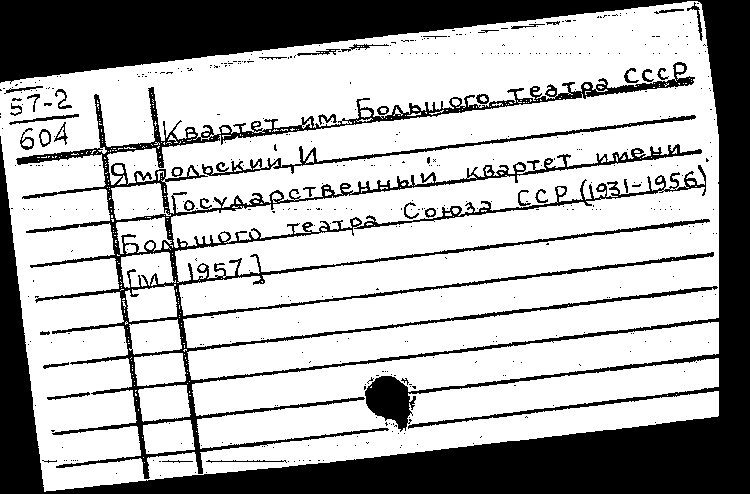 57-2
604
Квартет им. Большого театра СССР
Ямпольский, И
Государственный квартет имени
Большого театра Союза ССР (1931-1956)
[М 1957.]